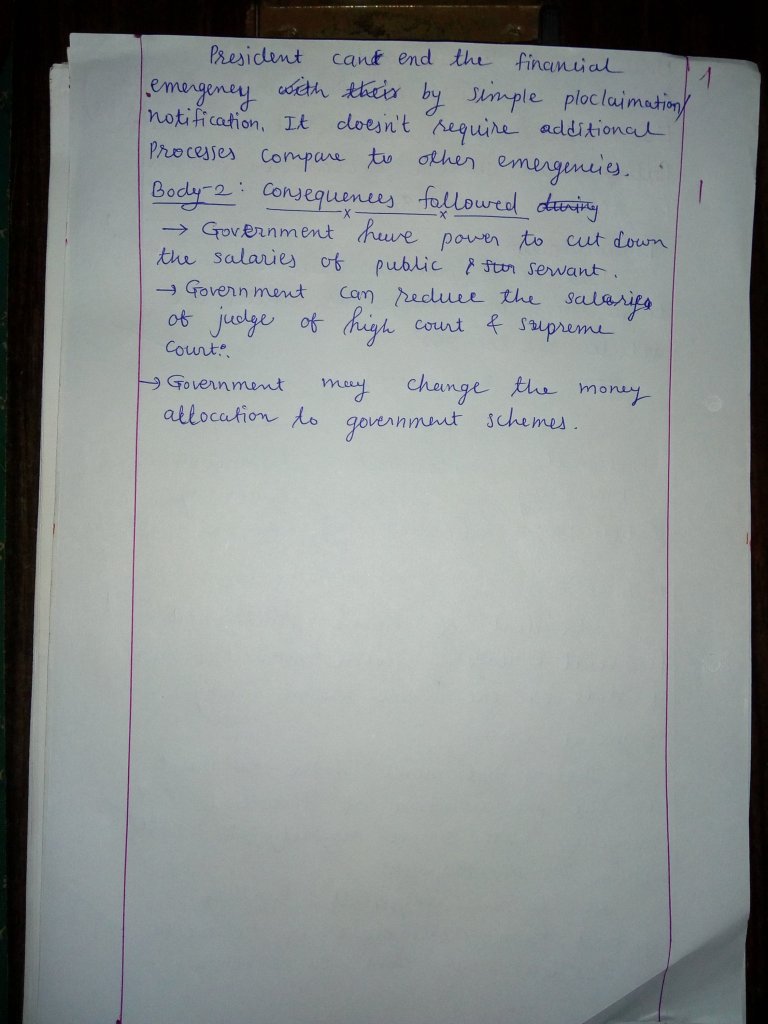 President can end the financial
emergency with their by simple ploclaimation/
notification. It doesn't require additional
Processes compare to other emergencies.
Body-2: Consequences followed during
→ Government have power to cut down
the salaries of public & servant.
→ Government can reduce the salaries
of judge of high court & supreme
court.
→ Government may change the money
allocation to government schemes.
1
1